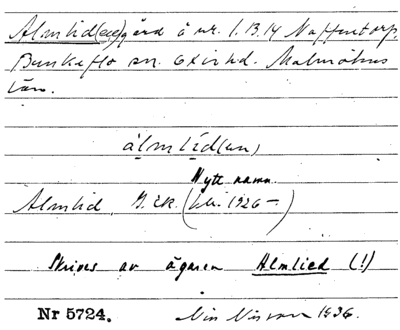 Almlid(en) gård å nr. 1.13.14 Naffentorp,
Bunkeflo sn. Oxie hd. Malmöhus
län.
älmlid(ən)
Nytt namn.
Almlid, J. ek. 1926–)
Skrives av ägaren Almlied (!)
Nr 5724. Nils Nilsson 1936.